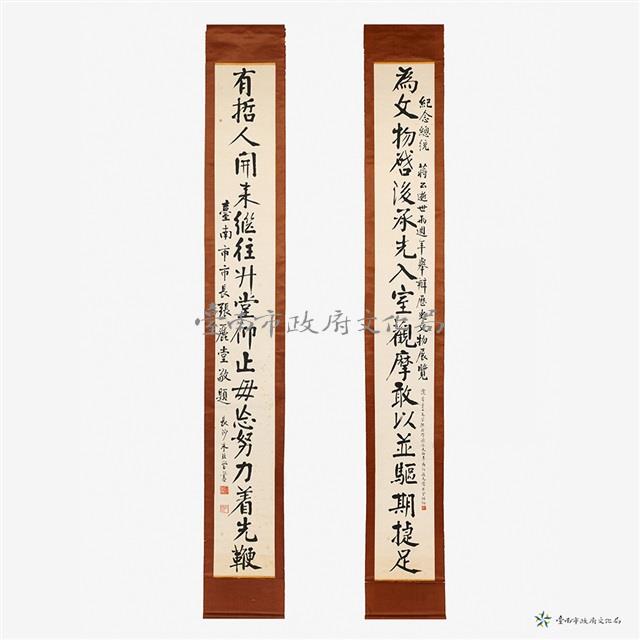 為文物啓後承先入室觀摩敢以並驅期捷足
紀念總統 蔣公逝世兩週年舉辦歷史文物展覽
有哲人開來繼往升堂仰止毋忘努力着先鞭
臺南市市長張麗堂敬題
臺南市政府文化局
臺南市政府文化局